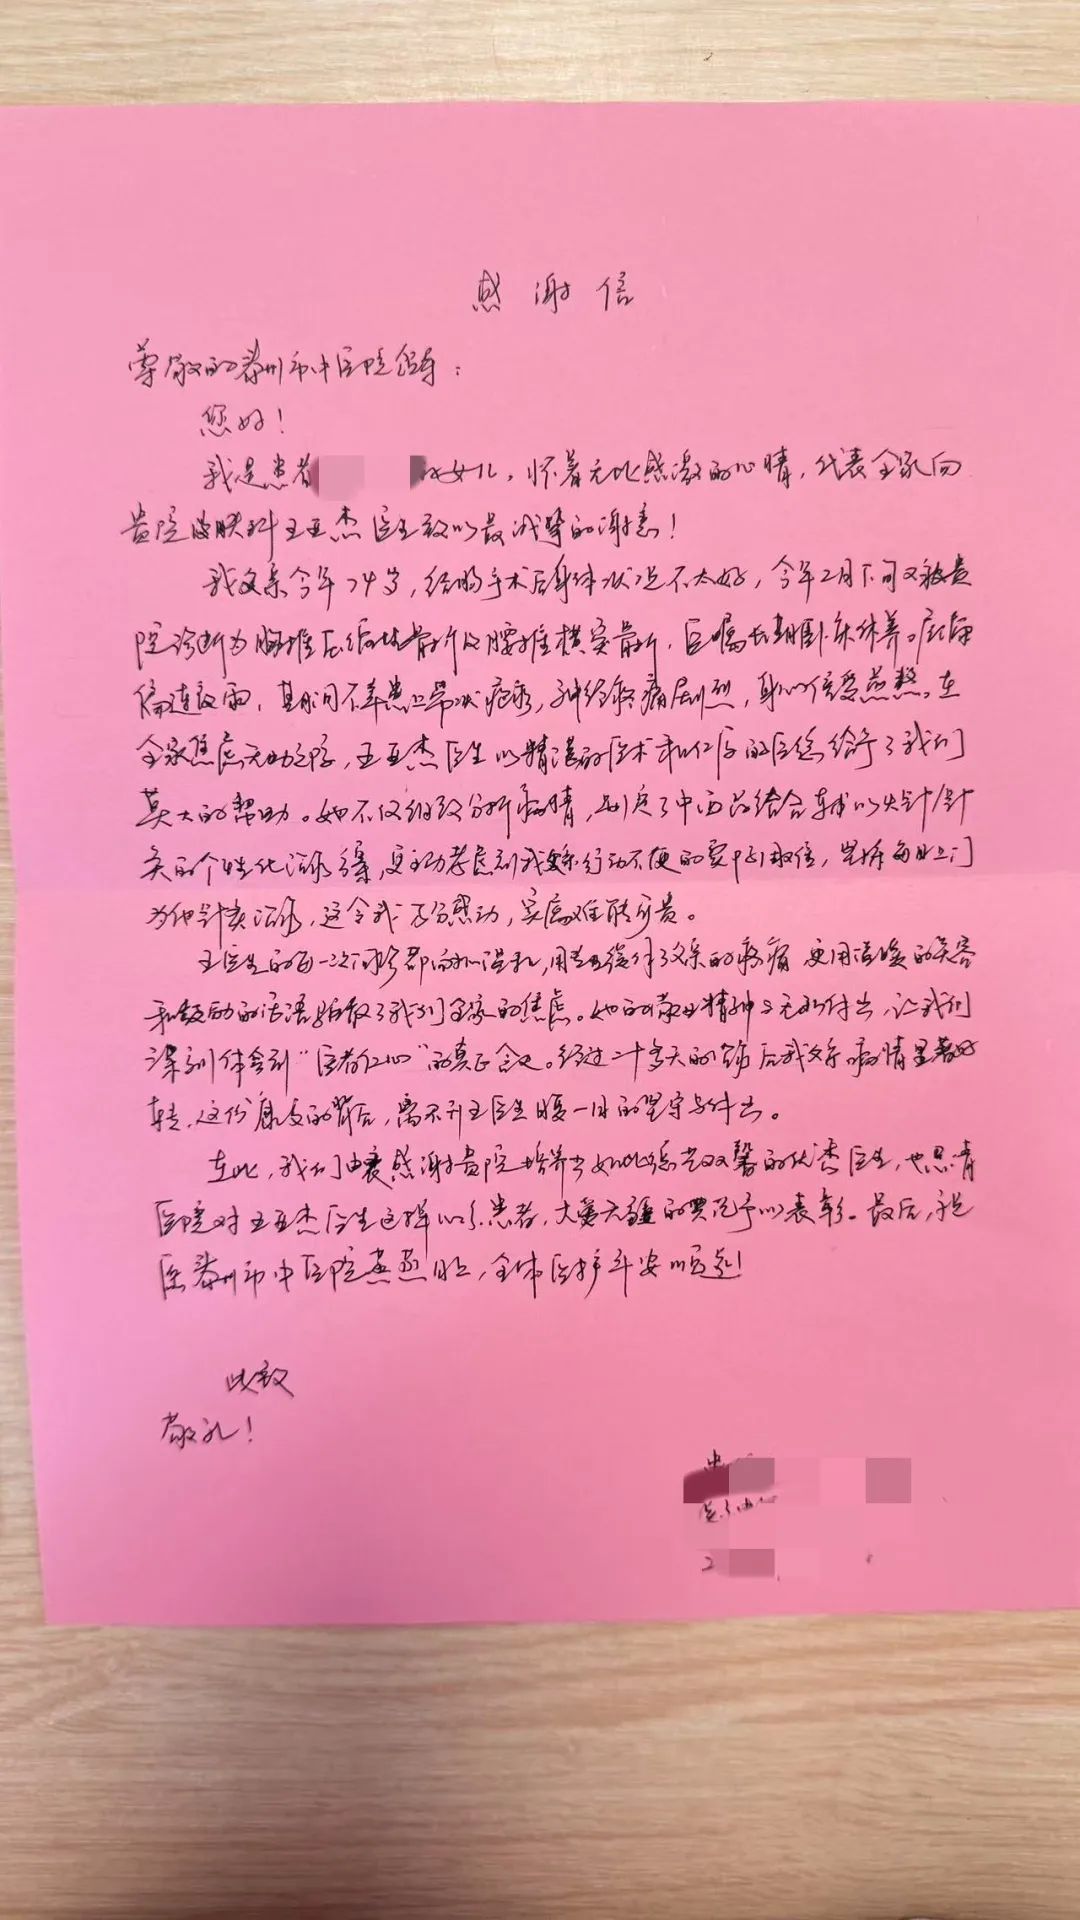 感谢信
尊敬的泰州市中医院领导：
您好！
我是患者 的女儿，怀着无比感激的心情，代表全家向
贵院皮肤科王亚杰医生致以最诚挚的谢意！
我父亲今年74岁，结肠手术后身体状况不太好，今年2月下旬又被贵
院诊断为胸椎压缩性骨折及腰椎横突骨折，医嘱长期卧床休养。屋漏
偏逢夜雨，其间不幸患上带状疱疹，神经疼痛剧烈，身心倍受煎熬。在
全家焦虑无助之际，王亚杰医生以精湛的医术和仁厚的医德给予了我们
莫大的帮助。她不仅细致分析病情，制定了中西药结合辅以火针/针
灸的个性化治疗方案，更主动考虑到我父亲行动不便的 ，坚持每日上门
为他针灸治疗，这令我万分感动，实属难能可贵。
王医生的每一次问诊都耐心温和，用专业缓解了父亲的疼痛 更用温暖的笑容
和鼓励的话语驱散了我们全家的焦虑。她的敬业精神与无私付出，让我们
深刻体会到“医者仁心”的真正含义。经过二十多天的治疗后我父亲病情显著好
转，这份康复的背后，离不开王医生日复一日的坚守与付出。
在此，我们由衷感谢贵院培养出如此德艺双馨的优秀医生，也恳请
医院对王亚杰医生这样心系患者，大爱无疆的典范予以表彰。最后，祝
愿泰州市中医院蒸蒸日上，全体医护平安顺遂！
此致
敬礼！